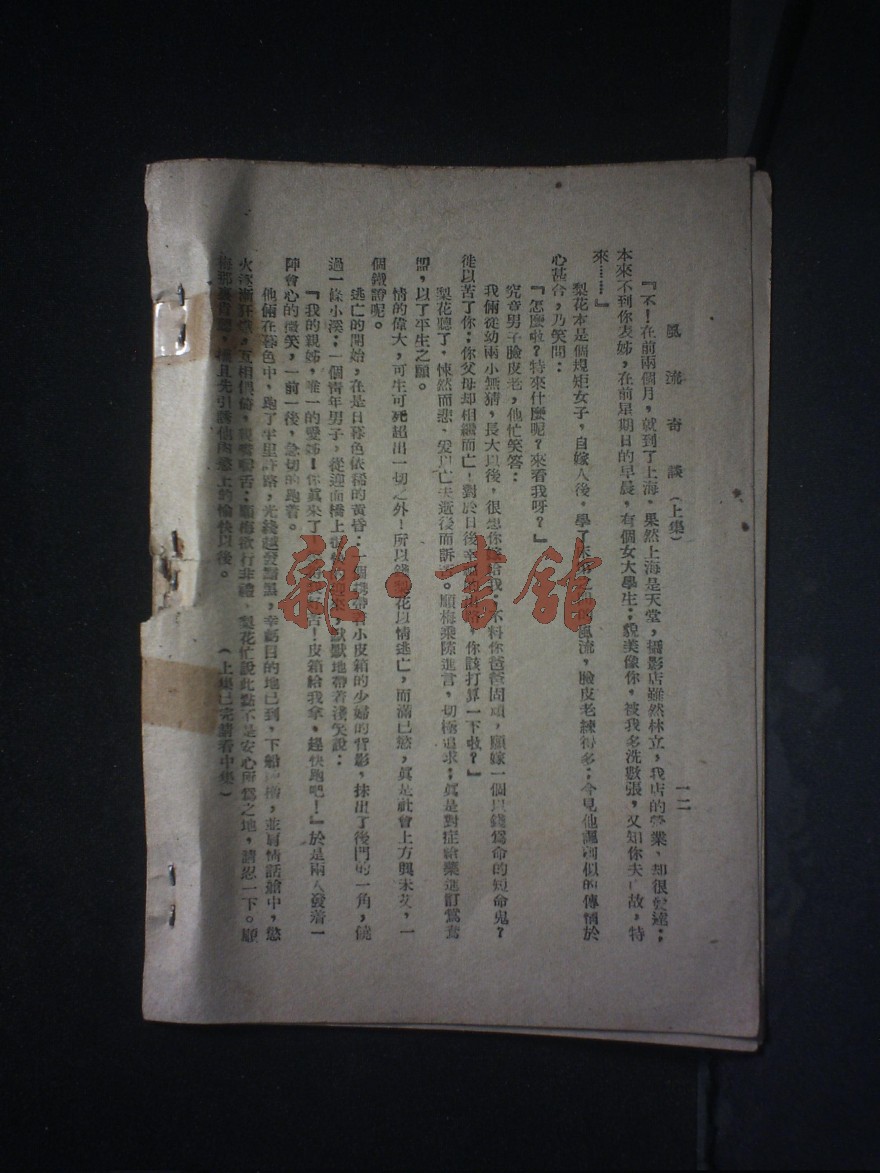 風流奇談（上集）
一二
『不！在前兩個月，就到了上海，果然上海是天堂，攝影店雖然林立，我店的營業，却很發達；
本來不到你表姊，在前星期日的早晨，有個女大學生；貌美像你，被我多洗數張，又知你夫亡故，特
來……』
梨花本是個規矩女子，自嫁人後，學了風流，臉皮老練得多；今見他諷刺似的傳情於
心甚合，乃笑問：
『怎麼啦？特來什麼呢？來看我呀？』
究竟男子臉皮老，他忙笑答：
我倆從幼兩小無猜，長大以後，很想你嫁給我；不料你爸爸固頑，願嫁一個以錢爲命的短命鬼？
徒以苦了你；你父母却相繼而亡！對於日後幸福，你該打算一下啦？』
梨花聽了，悚然而悲，爰以亡夫逝後而訴。顧梅乘隙進言，切極追求；眞是對症給藥進訂鴛鴦
盟，以了平生之願。
情的偉大，可生可死超出一切之外！所以錢梨花以情逃亡，而滿已慾，眞是社會上方興未艾，一
個鐵證呢。
逃亡的開始，在是日暮色依稀的黃昏；一個攜帶着小皮箱的少婦的背影，抹出了後門的一角，僥
過一條小溪；一個青年男子，從迎面橋上，默默地帶着淺笑說：
『我的親姊，唯一的愛姊！你眞來了！皮箱給我拿，趕快跑吧！』於是兩人發着一
陣會心的微笑，一前一後，急切的跑着。
他倆在暮色中，跑了半里許路，光綫越發黯黑，幸虧目的地已到，下船，並肩情話艙中，慾
火逐漸狂熾，互相偎倚，顧梅欲行非禮，梨花忙說此點不是安心所爲之地，請忍一下。顧
以後。　（上集已完請看中集）